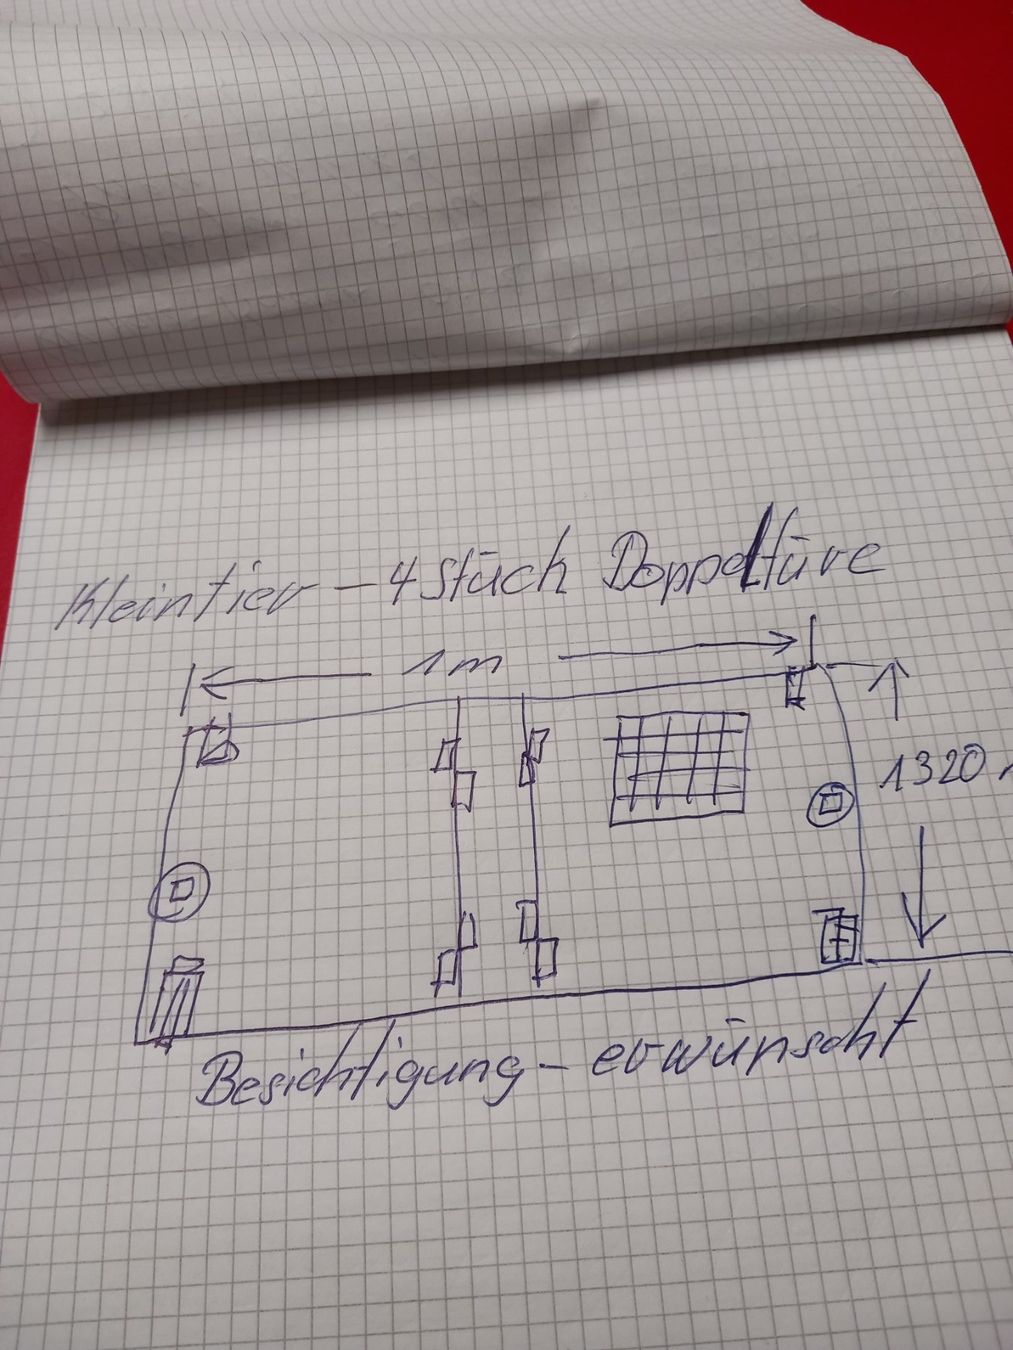 Kleintier – 4 Stück Doppeltüre
1 m
1320
Besichtigung – erwünscht